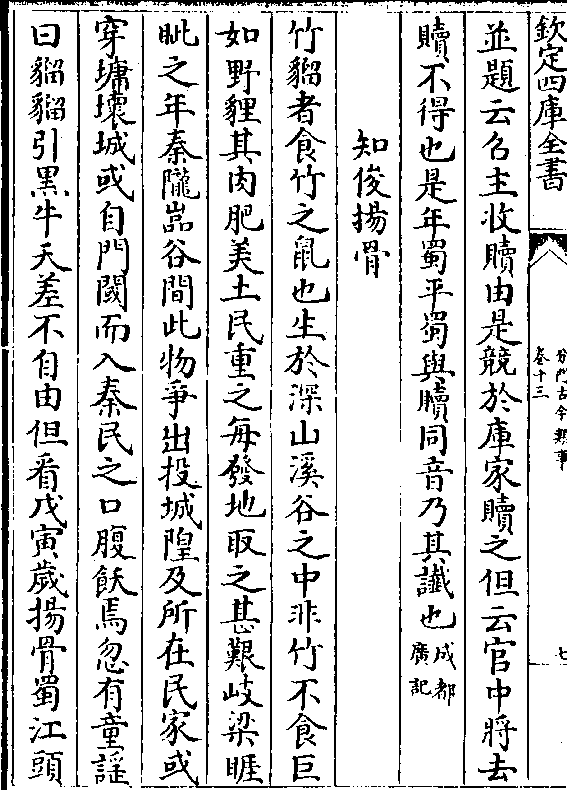 欽定四庫全書
分門古今類事
卷十三
七
並題云召主收贖由是競於庫家贖之但云官中將去
贖不得也是年蜀平蜀與贖同音乃其讖也成都廣記
知俊揚骨
竹䶉者食竹之鼠也生於深山溪谷之中非竹不食巨
如野貍其肉肥美土民重之每發地取之甚艱岐梁睚
眦之年秦隴嵓谷間此物爭出投城隍及所在民家或
穿墉壊城或自門閾而入秦民之口腹飫焉忽有童謡
曰䶉䶉引黒牛天差不自由但看戊寅歳揚骨蜀江頭